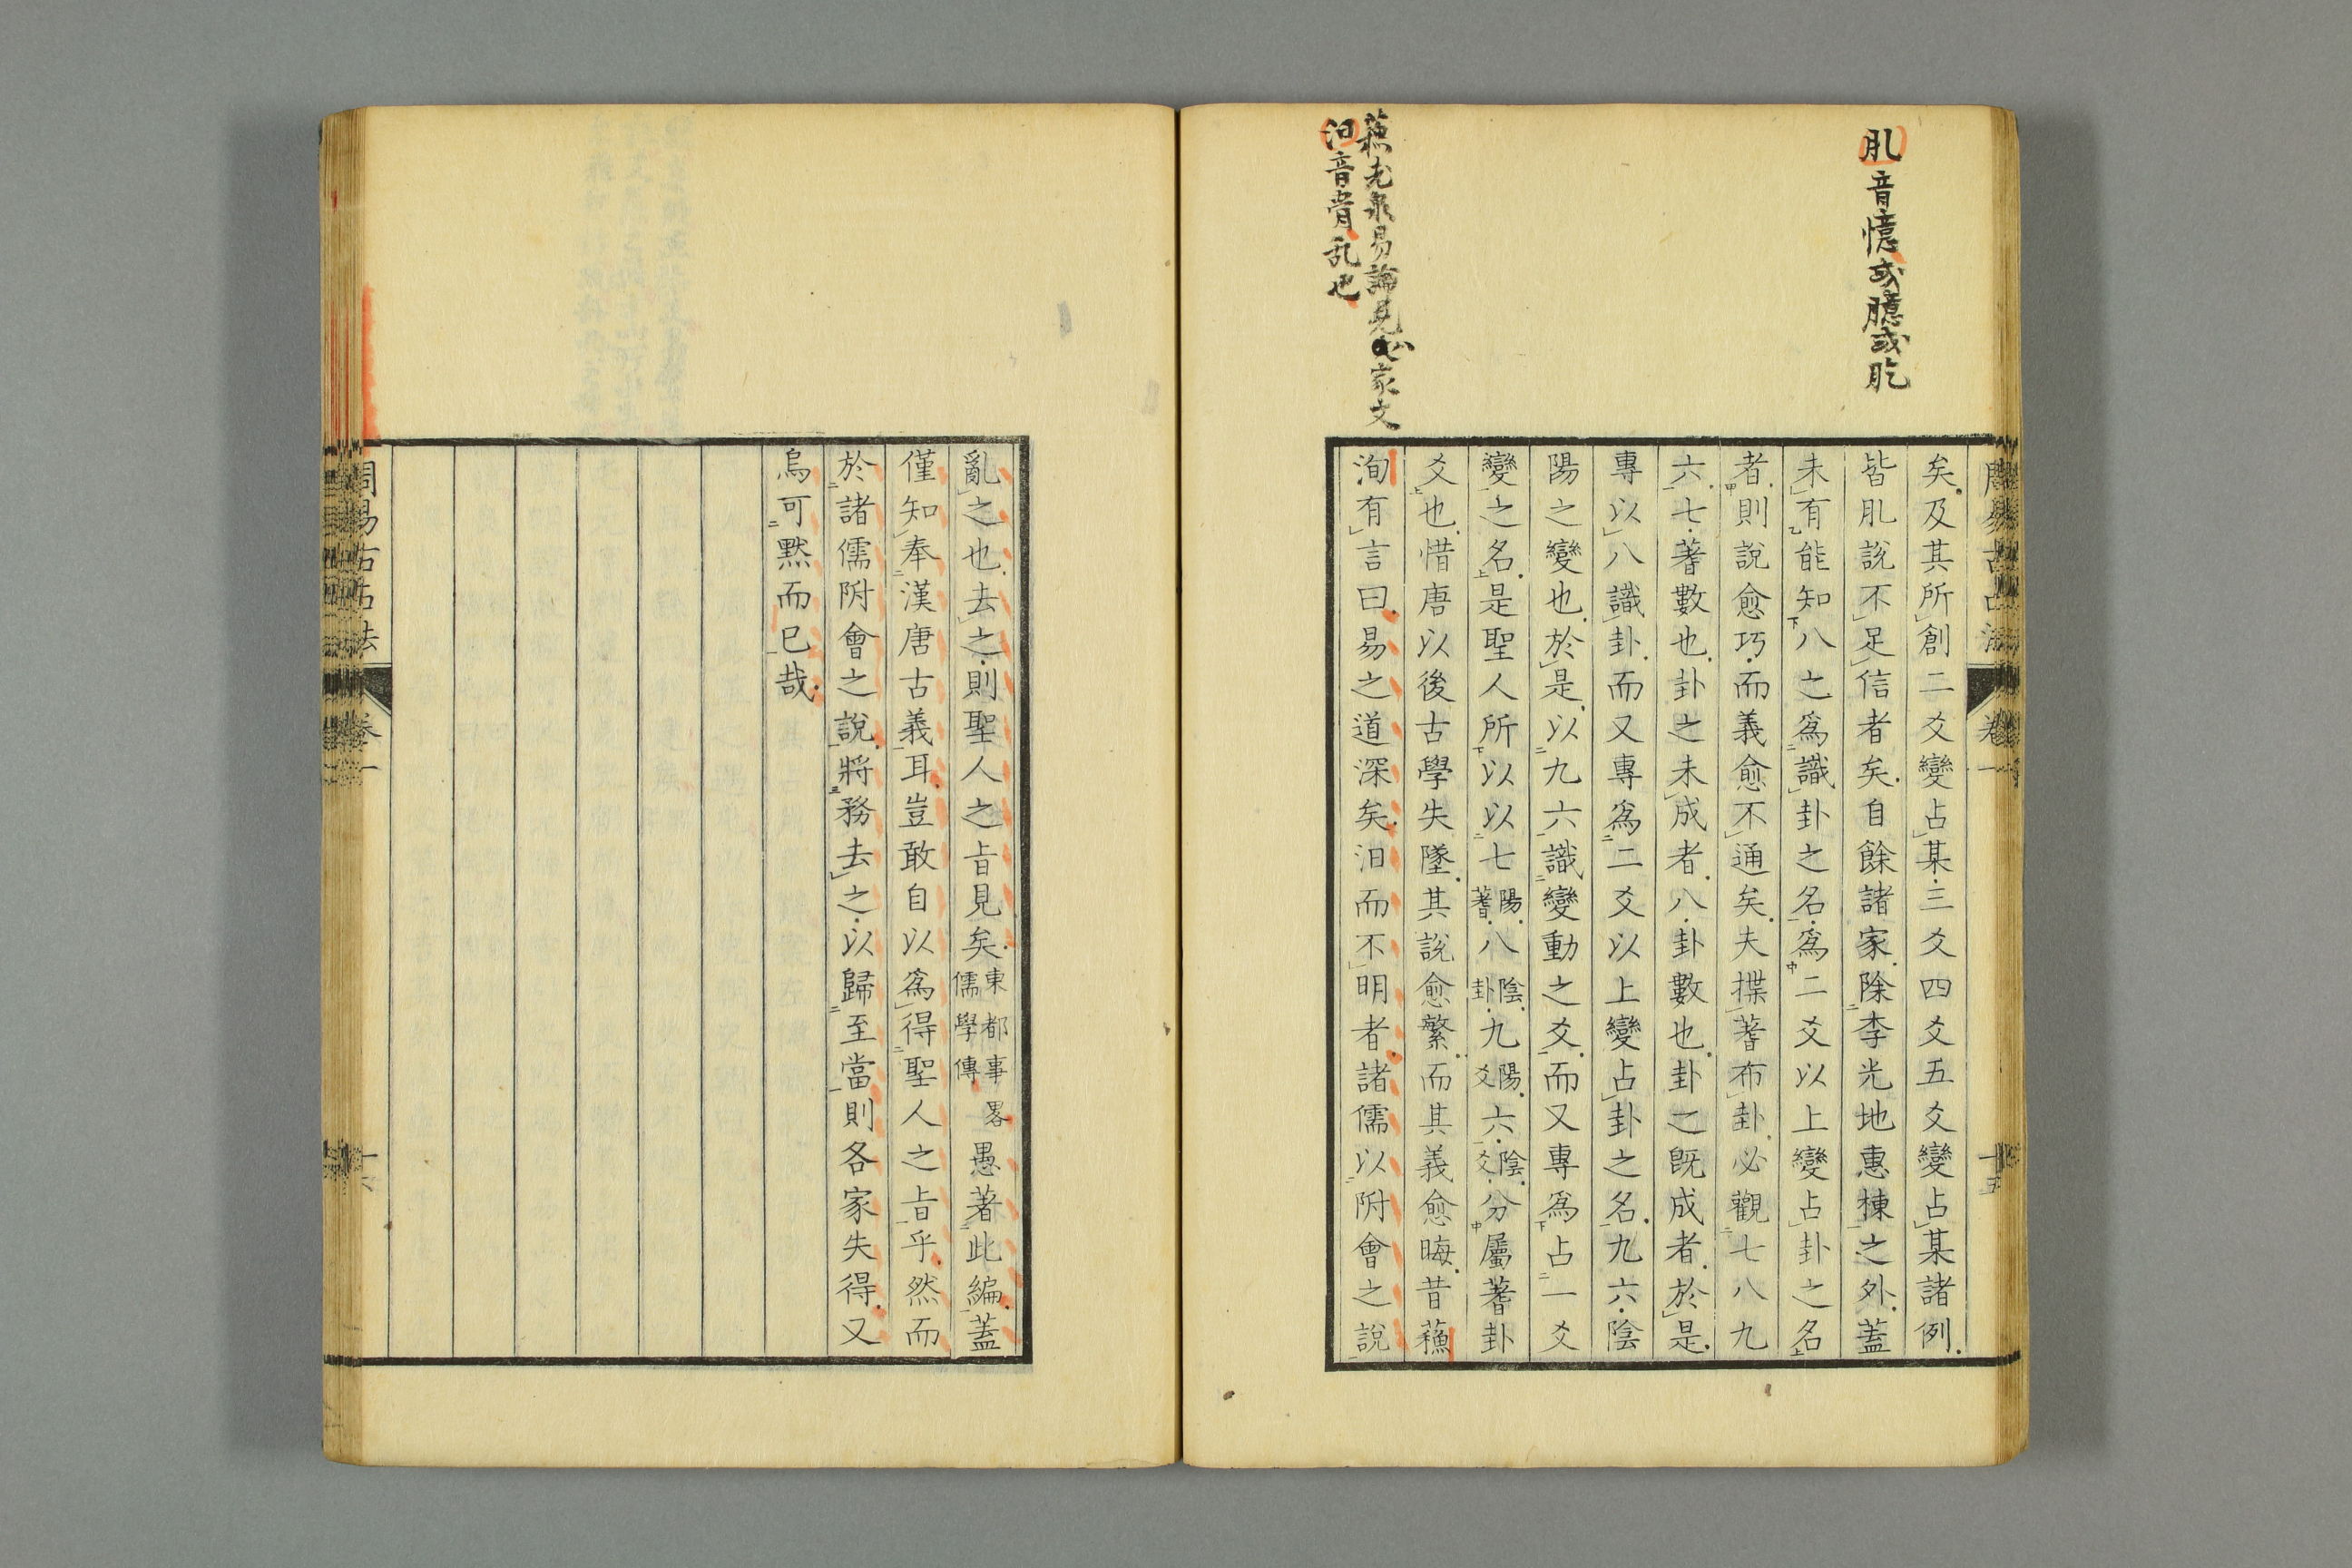 肊音憶或臆或肐
蘓老泉易論見必家文
汩音骨乱也
周易古占法 卷一 十五
矣及其所創二爻變占某三爻四爻五爻變占某諸例
皆肊說不足信者矣自餘諸家除李光地惠棟之外蓋
未有能知八之爲識卦之名爲二爻以上變占卦之名
者則說愈巧而義愈不通矣夫揲蓍布卦必觀七八九
六七蓍數也卦之未成者八卦數也卦之既成者於是
專以八識卦而又專爲二爻以上變占卦之名九六陰
陽之變也於是以九六識變動之爻而又專爲占一爻
變之名是聖人所以以七陽蓍八陰卦九陽爻六陰爻分屬蓍卦
爻也惜唐以後古學失墜其說愈繁而其義愈晦昔蘓
洵有言曰易之道深矣汩而不明者諸儒以附會之說
亂之也去之則聖人之㫖見矣東都事畧儒學傳愚著此編蓋
僅知奉漢唐古義耳豈敢自以爲得聖人之㫖乎然而
於諸儒附會之說將務去之以歸至當則各家失得又
烏可黙而已哉
周易古占法 卷一 十六